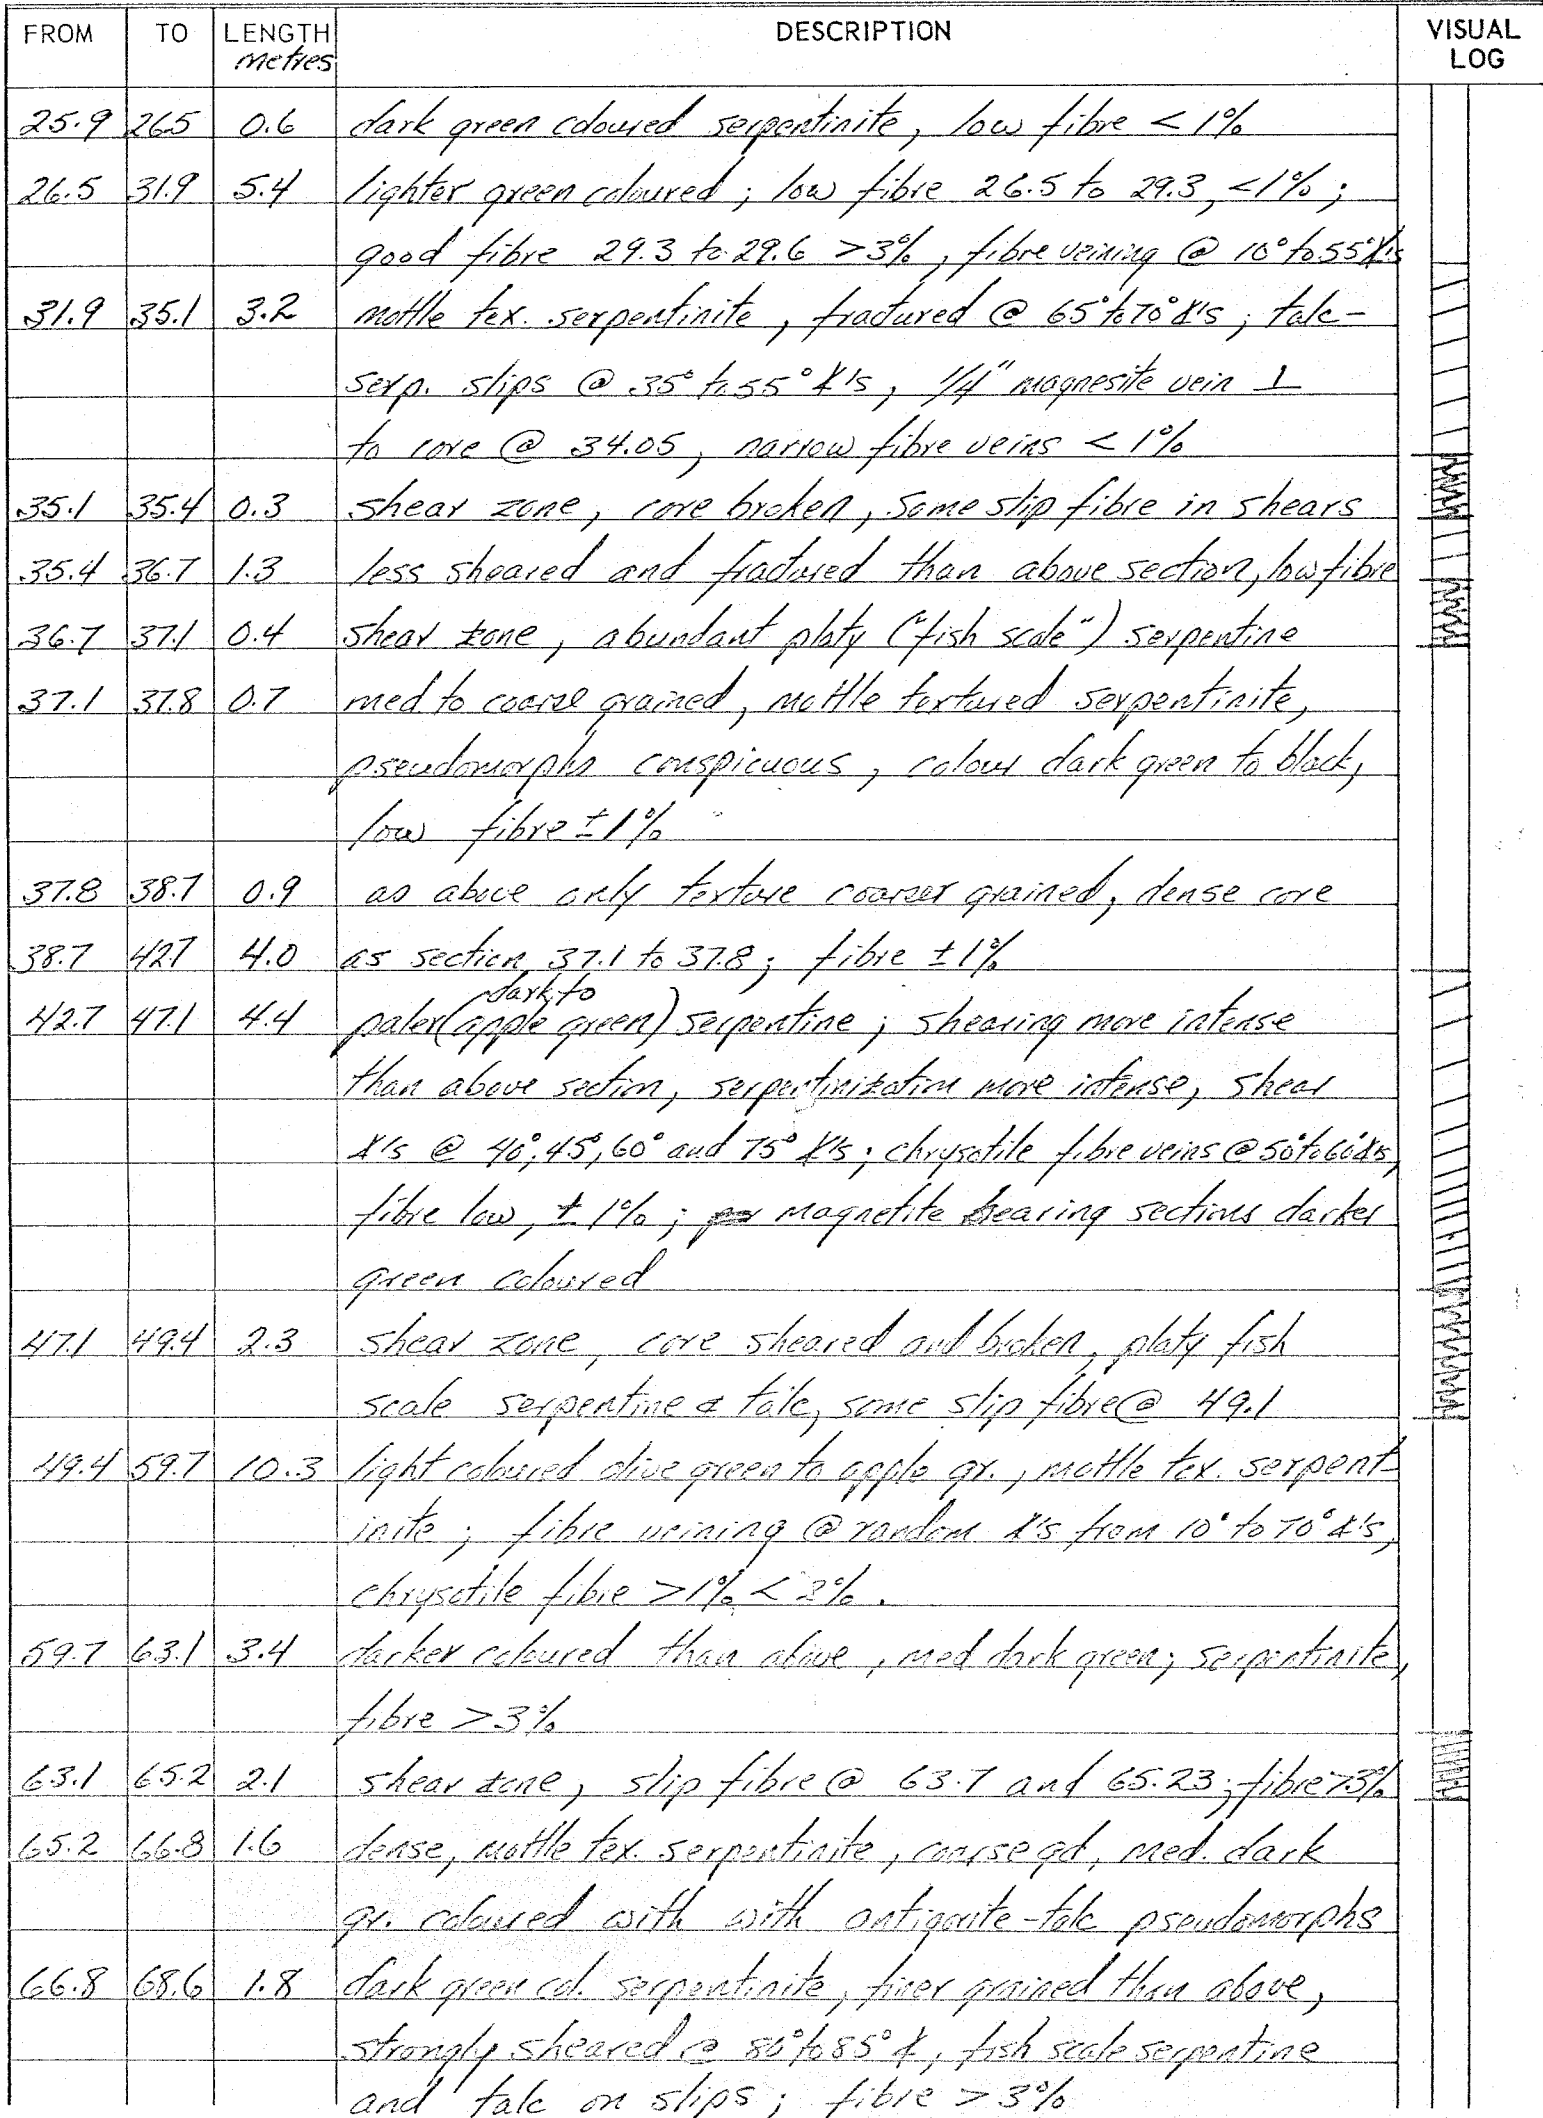 FROM TO LENGTH DESCRIPTION VISUAL
metres LOG
25.9 26.5 0.6 dark green coloured serpentinite, low fibre < 1%
26.5 31.9 5.4 lighter green coloured; low fibre 26.5 to 29.3, <1%;
good fibre 29.3 to 29.6 >3%, fibre veining @ 10° to 55° ∠'s
31.9 35.1 3.2 mottle tex. serpentinite, fractured @ 65° to 70° ∠'s; talc-
serp. slips @ 35° to 55° ∠'s, 1/4" magnesite vein ⊥
to core @ 34.05, narrow fibre veins < 1%
35.1 35.4 0.3 shear zone, core broken, some slip fibre in shears
35.4 36.7 1.3 less sheared and fractured than above section, low fibre
36.7 37.1 0.4 shear zone, abundant platy ("fish scale") serpentine
37.1 37.8 0.7 med to coarse grained, mottle textured serpentinite,
pseudomorphs conspicuous, colour dark green to black,
low fibre ±1%
37.8 38.7 0.9 as above only texture coarser grained, dense core
38.7 42.7 4.0 as section 37.1 to 37.8; fibre ±1%
dark to
42.7 47.1 4.4 paler (apple green) serpentine; shearing more intense
than above section, serpentinization more intense, shear
∠'s @ 40°, 45°, 60° and 75° ∠'s; chrysotile fibre veins @ 50° to 60° ∠'s,
fibre low, ± 1%; magnetite bearing sections darker
green coloured
47.1 49.4 2.3 shear zone, core sheared and broken, platy fish
scale serpentine & talc, some slip fibre @ 49.1
49.4 59.7 10.3 light coloured olive green to apple gr., mottle tex. serpent-
inite; fibre veining @ random ∠'s from 10° to 70° ∠'s,
chrysotile fibre >1% < 2%.
59.7 63.1 3.4 darker coloured than above, med dark green; serpentinite,
fibre >3%
63.1 65.2 2.1 shear zone, slip fibre @ 63.7 and 65.23; fibre >3%
65.2 66.8 1.6 dense, mottle tex. serpentinite, coarse gd, med. dark
gr. coloured with with antigorite-talc pseudomorphs
66.8 68.6 1.8 dark green col. serpentinite, finer grained than above,
strongly sheared @ 80° to 85° ∠, fish scale serpentine
and talc on slips; fibre > 3%